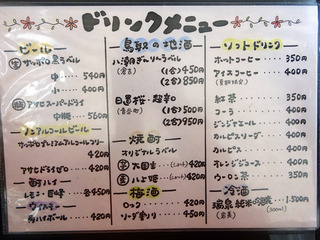 ドリンクメニュー
ビール
生 サッポロ黒ラベル
中・・・540円
小・・・400円
アサヒスーパードライ
中瓶・・・560円
ノンアルコールビール
サッポロプレミアムアルコールフリー
420円
アサヒドライゼロ・・・420円
酎ハイ
レモン・巨峰・・・各450円
ウイスキー
角ハイボール・・・420円
鳥取の地酒
八潮
(倉吉)
(1合)450円
(2合)850円
日置桜・
(1合)500円
(2合)950円
焼酎
オリジナルラベル
420円
420円
梅酒
ロック・・・420円
ソーダ割り・・・450円
ソフトドリンク
ホットコーヒー・・・350円
アイスコーヒー・・・400円
紅茶・・・350円
コーラ・・・350円
ジンジャーエール・・・350円
カルピスソーダ・・・350円
カルピス・・・350円
オレンジジュース・・・350円
ウーロン茶・・・350円
冷酒
(300ml)
1,500円